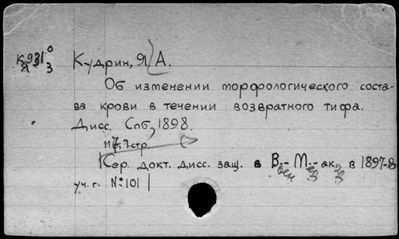 К931⁰ Кудрин, Я. А.
Я - 3
Об изменении морфологического соста-
ва крови в течении возвратного тифа.
Дисс. Спб, 1898.
117, 1 стр.
(Сер. докт. дисс. защ. в Воен.-Мед.-ак. в 1897-8
уч. г. №101)